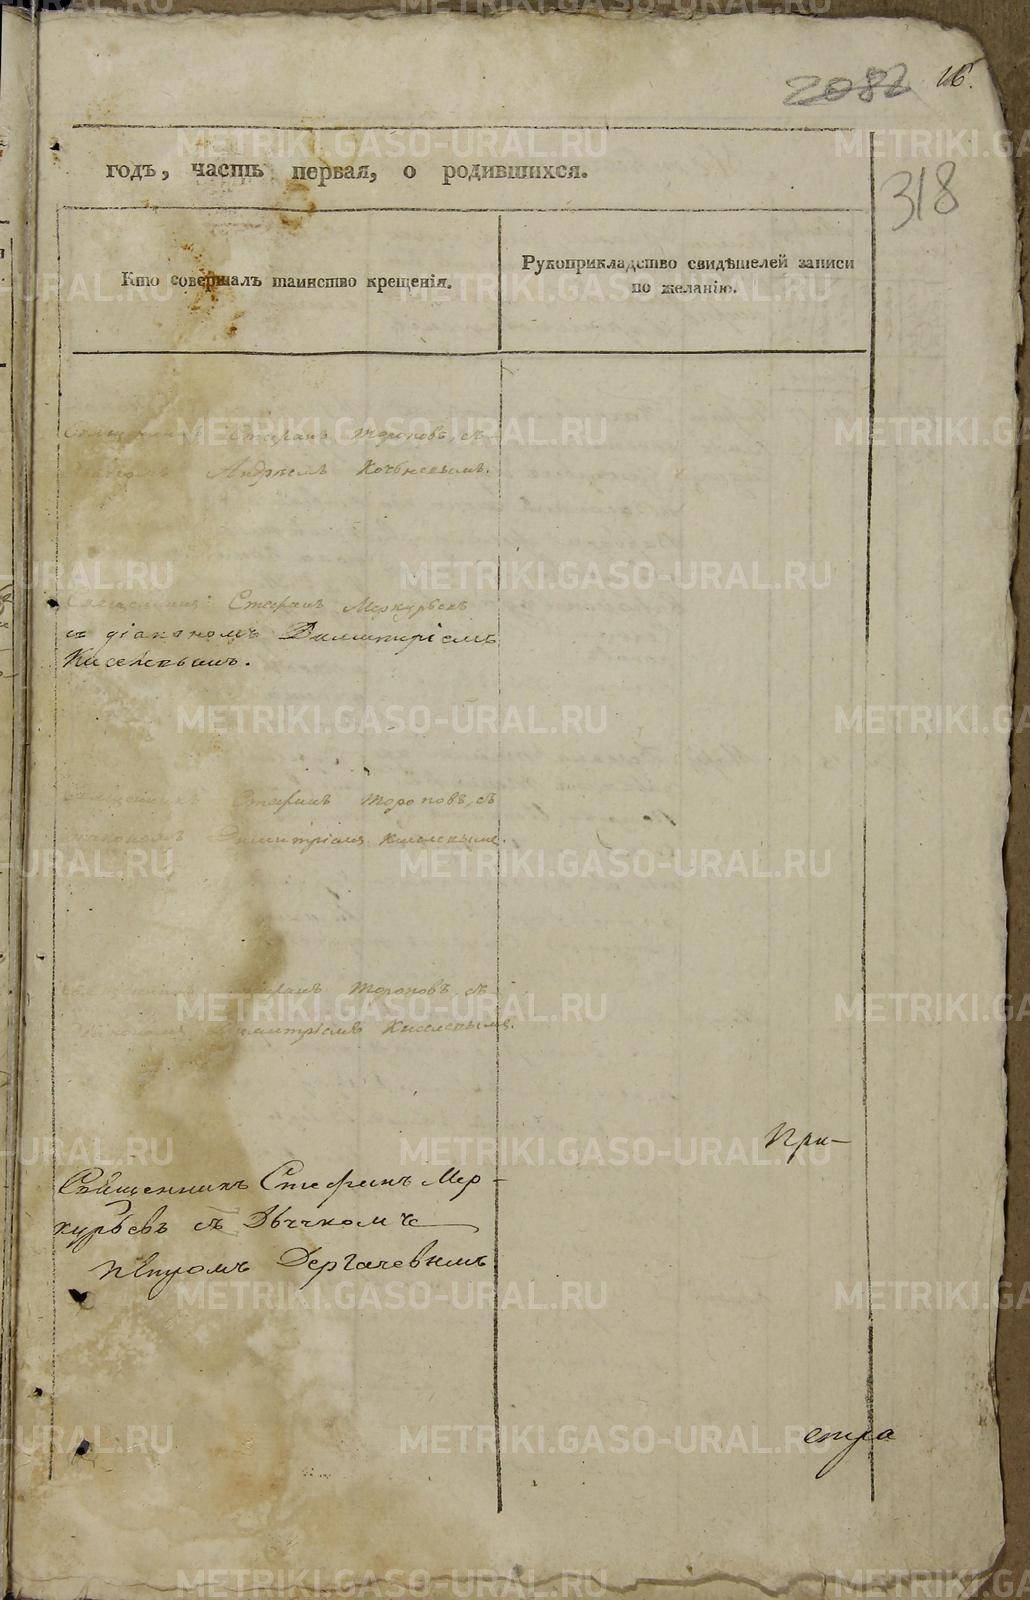 2082 16.
318
годъ, часть первая, о родившихся.
Кто совершалъ таинство крещенія.
Рукоприкладство свидѣтелей записи
по желанію.
Священникъ Стефанъ Тороповъ, съ
Андреемъ Кочневымъ.
Священникъ Стефанъ Меркурьевъ
съ діакономъ Димитріемъ
Киселевымъ.
Священникъ Стефанъ Тороповъ, съ
діакономъ Димитріемъ Киселевымъ.
Священникъ Стефанъ Тороповъ, съ
діакономъ Димитріемъ Киселевымъ.
При-
Священникъ Стефанъ Мер-
курьевъ съ Дьячкомъ
Петромъ Дергачевымъ
стра
METRIKI.GASO-URAL.RU